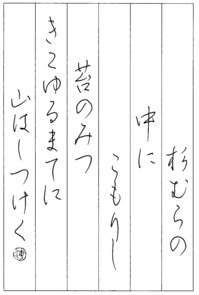 杉むらの
中に
こもりし
苔のみつ
きこゆるまてに
山はしつけく